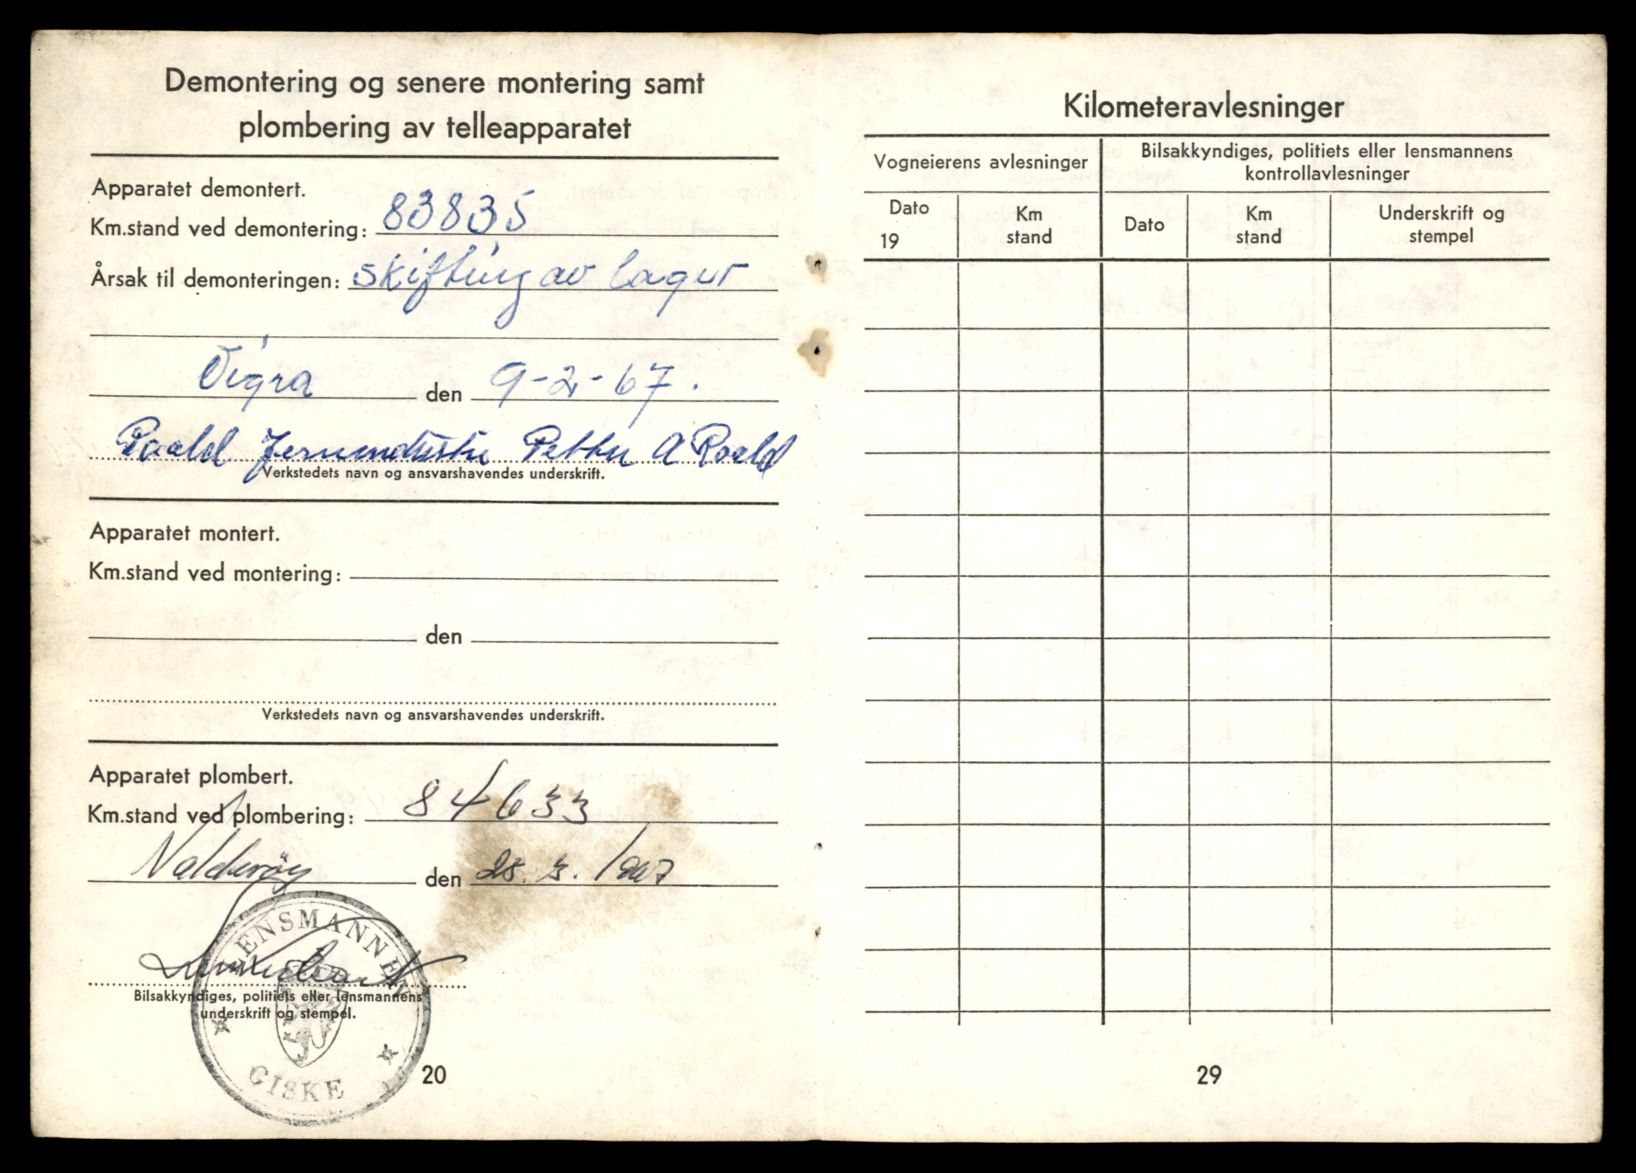 Demontering og senere montering samt
plombering av telleapparatet
Apparatet demontert.
Km.stand ved demontering: 83835
Årsak til demonteringen: skifting av lager
Vigra den 9-2-67.
Roald Petter A Roald
Verkstedets navn og ansvarshavendes underskrift.
Apparatet montert.
Km.stand ved montering:
den
Verkstedets navn og ansvarshavendes underskrift.
Apparatet plombert.
Km.stand ved plombering: 84633
Valderøy den 28. 3. 1967
LENSMANNEN
Bilsakkyndiges, politiets eller lensmannens
underskrift og stempel.
GISKE
20
Kilometeravlesninger
Vogneierens avlesninger
Bilsakkyndiges, politiets eller lensmannens
kontrollavlesninger
Dato
19
Km
stand
Dato
Km
stand
Underskrift og
stempel
29